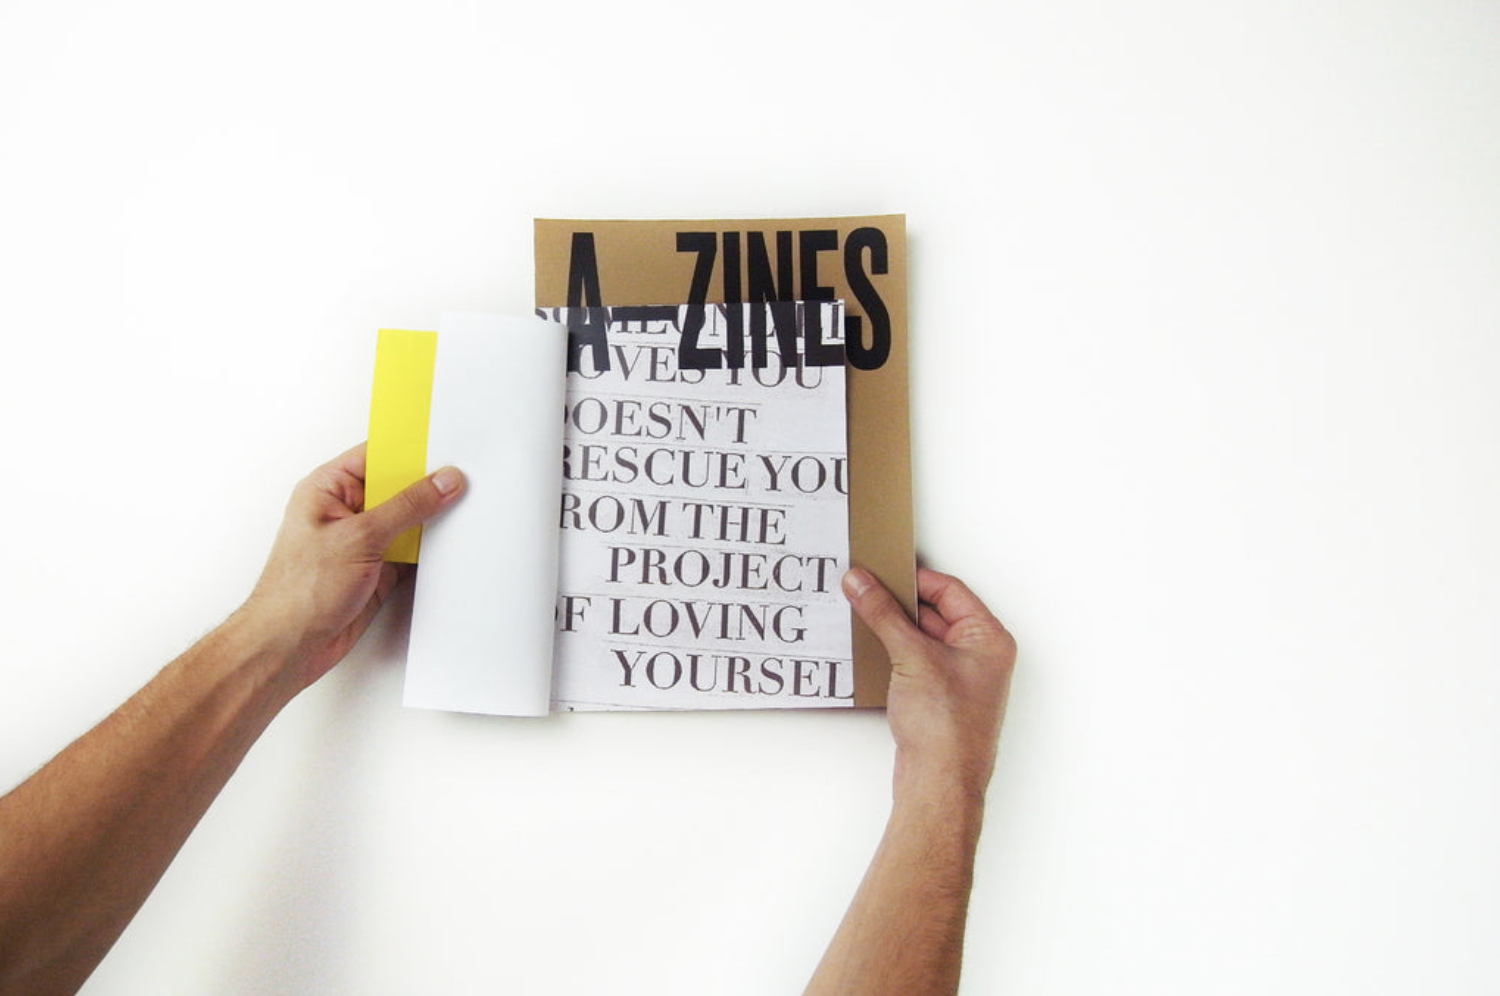 A—ZINES
SOMEONE
LOVES YOU
DOESN'T
RESCUE YOU
FROM THE
PROJECT
OF LOVING
YOURSEL